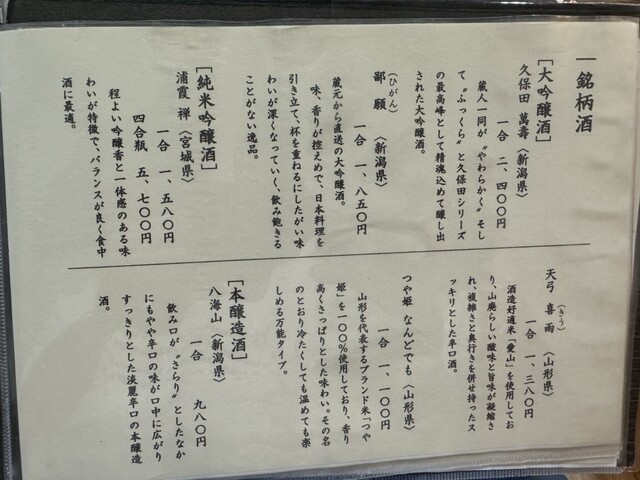 銘柄酒
［大吟醸酒］
久保田 萬寿〈新潟県〉
一合 二、四〇〇円
蔵人一同が〝やわらかく〟そし
て〝ふっくら〟と久保田シリーズ
の最高峰として精魂込めて醸し出
された大吟醸酒。
（ひがん）
鄙願 〈新潟県〉
一合 一、八五〇円
蔵元から直送の大吟醸酒。
味、香りが控えめで、日本料理を
引き立て、杯を重ねるにしたがい味
わいが深くなっていく、飲み飽きる
ことがない逸品。
［純米吟醸酒］
浦霞 禅〈宮城県〉
一合 一、五八〇円
四合瓶 五、七〇〇円
程よい吟醸香と一体感のある味
わいが特徴で、バランスが良く食中
酒に最適。
天弓 喜雨 〈山形県〉
（きう）
一合 一、三八〇円
酒造好適米「愛山」を使用してお
り、山廃らしい酸味と旨味が凝縮さ
れ、複雑さと奥行きを併せ持ったス
ッキリとした辛口酒。
つや姫 なんどでも〈山形県〉
一合 一、一〇〇円
山形を代表するブランド米「つや
姫」を一〇〇％使用しており、香り
高くさっぱりとした味わい。その名
のとおり冷たくしても温めても楽
しめる万能タイプ。
［本醸造酒］
八海山〈新潟県〉
一合 九八〇円
飲み口が〝さらり〟としたなか
にもやや辛口の味が口中に広がり
すっきりとした淡麗辛口の本醸造
酒。